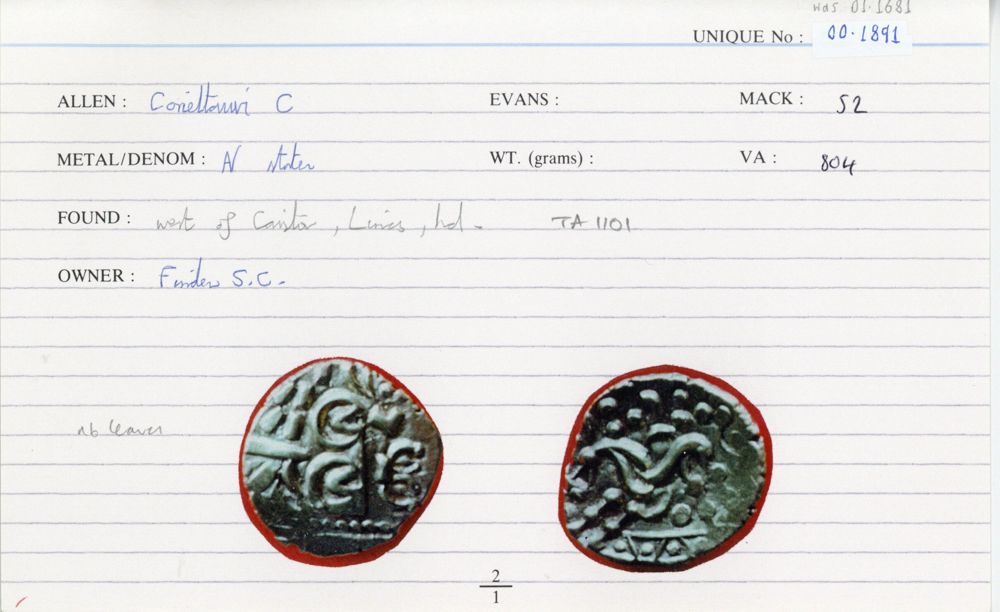 was 01.1681
UNIQUE No : 00.1891
ALLEN : Corieltauvi C EVANS : MACK : 52
METAL/DENOM : AV stater WT. (grams) : VA : 804
FOUND : west of Caistor, Lincs, hd. TA 1101
OWNER : Finder S.C.
nb leaves
2
1